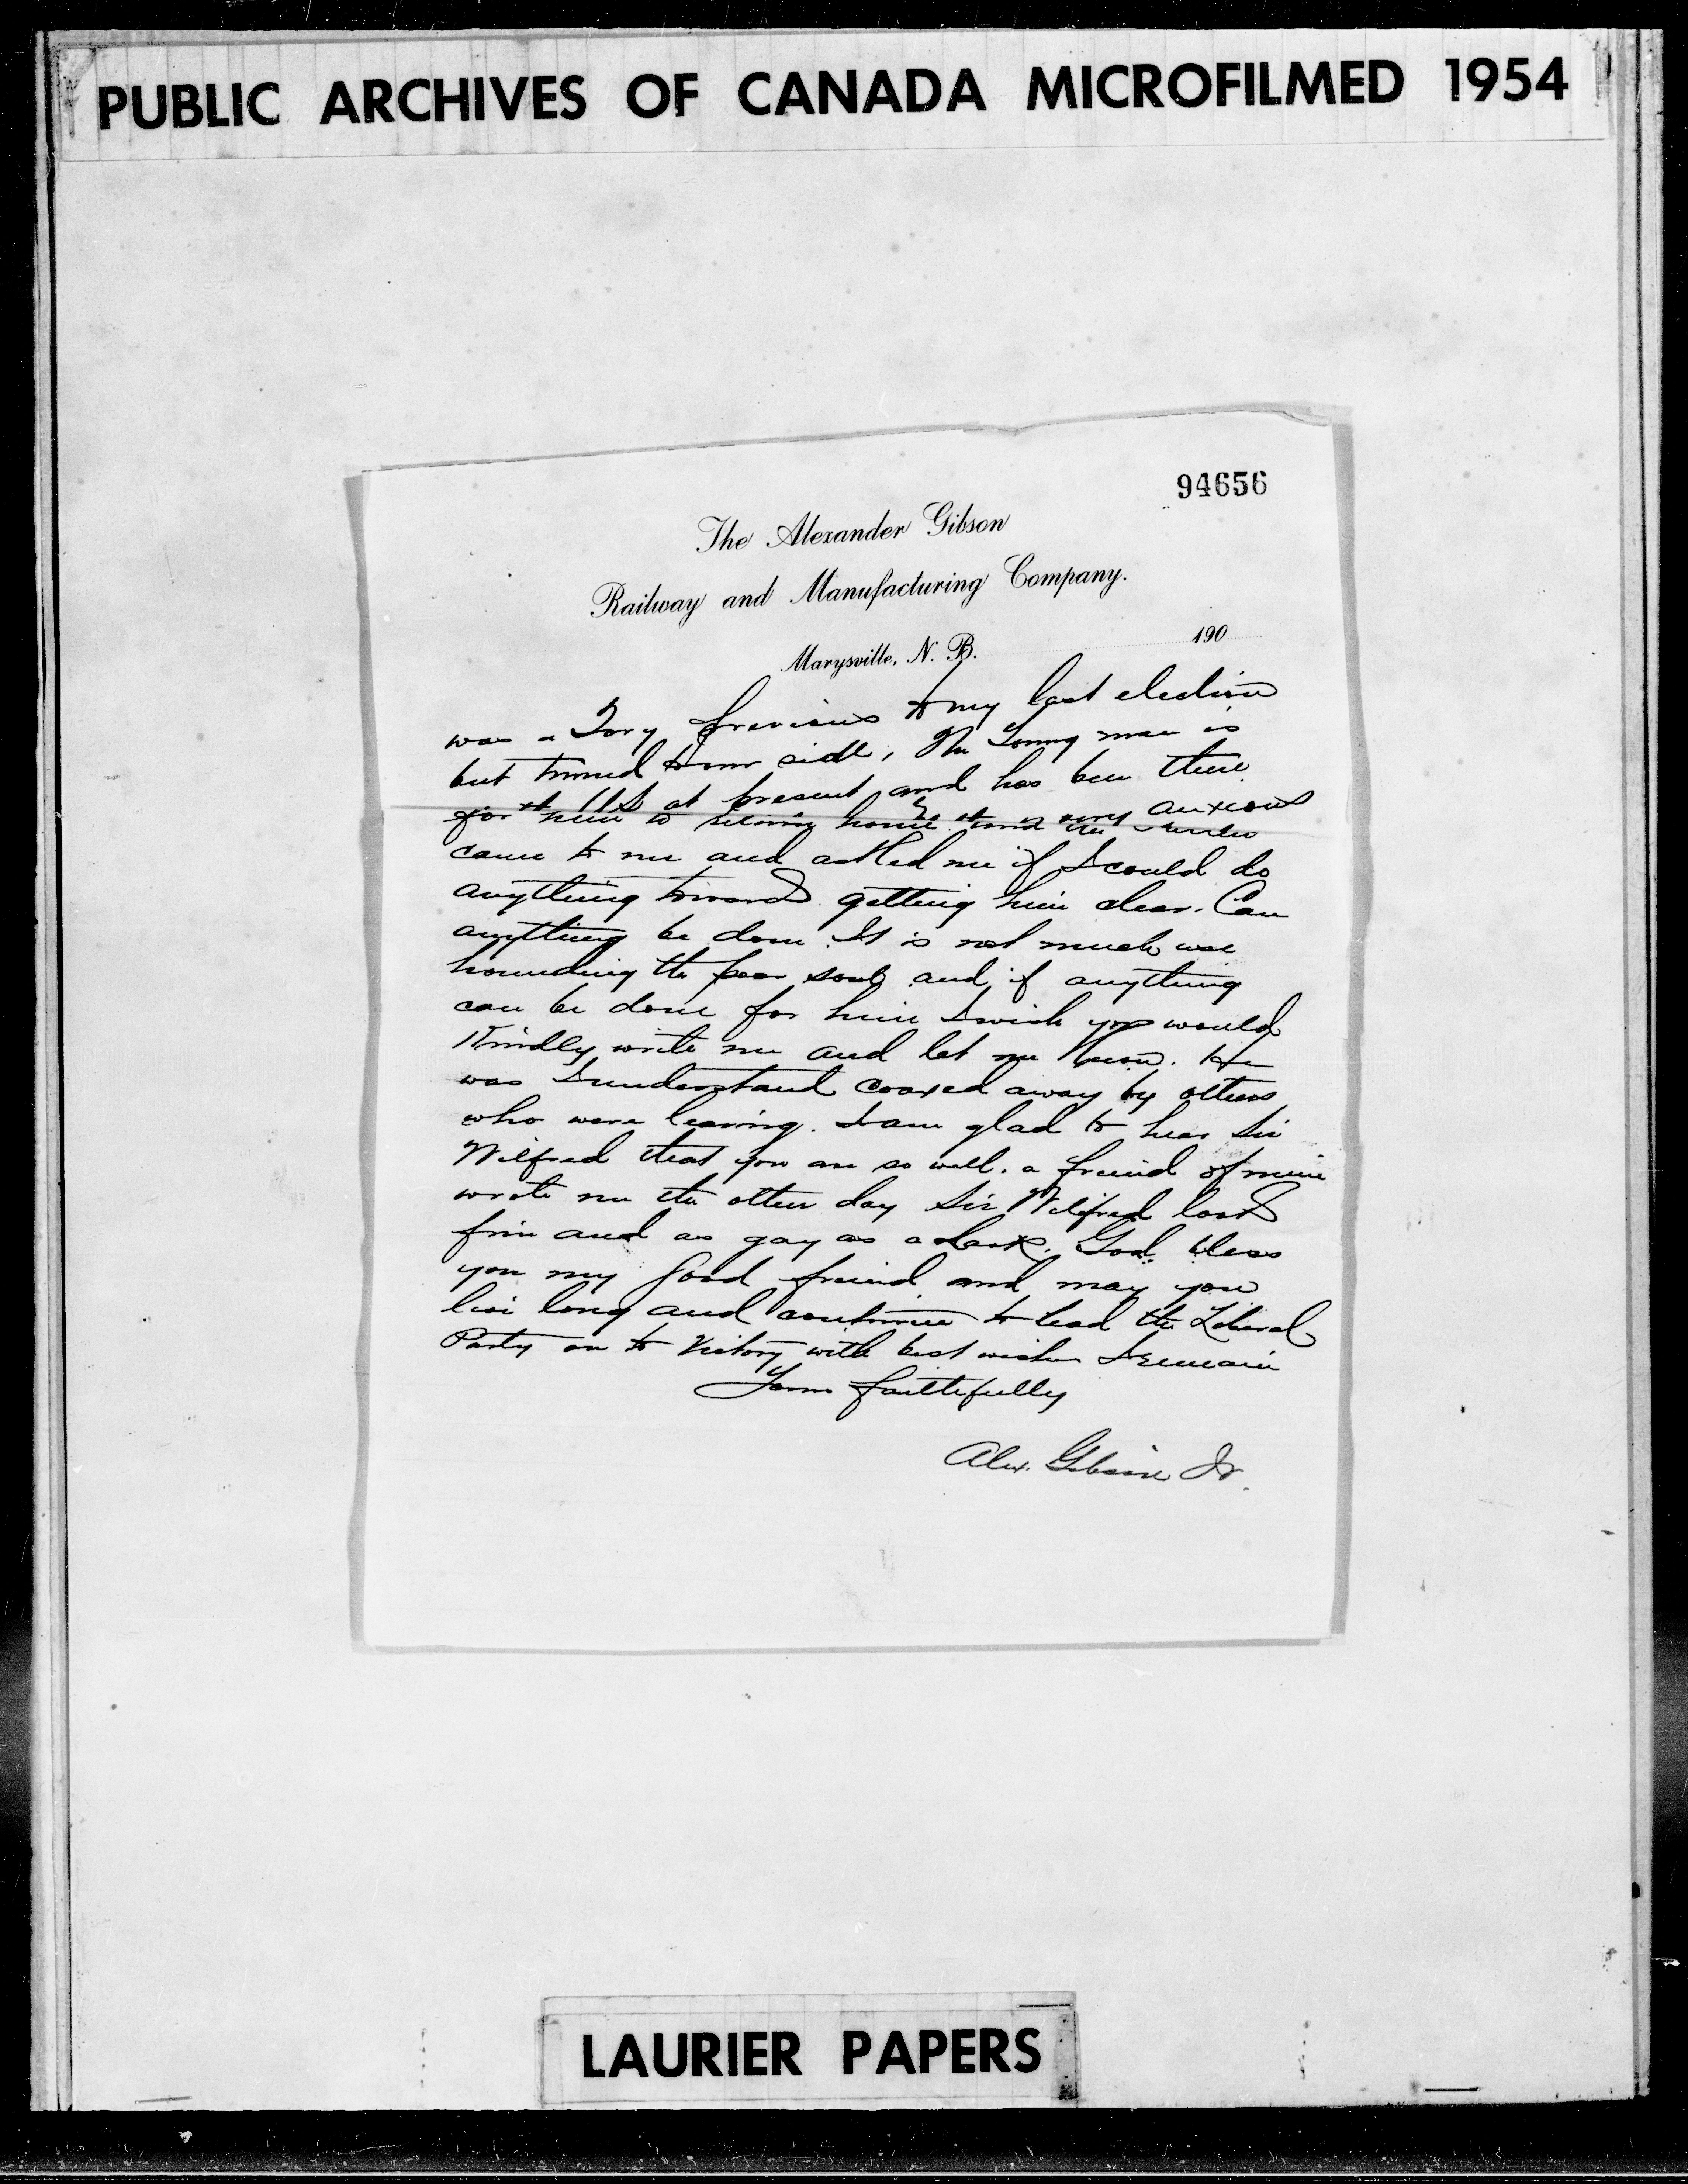 PUBLIC ARCHIVES OF CANADA MICROFILMED 1954
94656
The Alexander Gibson
Railway and Manufacturing Company.
Marysville, N. B. 190
was a Tory previous to my last election
but turned to our side, The Young man is
at US at present and has been there
for him to return home and very anxious
came to me and asked me if I could do
anything towards getting him clear. Can
anything be done. It is not much use
hounding the poor soul and if anything
can be done for him I wish you would
Kindly write me and let me know. He
was I understand coaxed away by others
who were leaving. I am glad to hear Sir
Wilfred that you are so well. a freind of mine
wrote me the other day Sir Wilfred looks
fine and as gay as a lark. God bless
you my good freind and may you
live long and continue to lead the Liberal
Party on to Victory with best wishes I remain
Yours faithfully
Alex. Gibson Jr.
LAURIER PAPERS